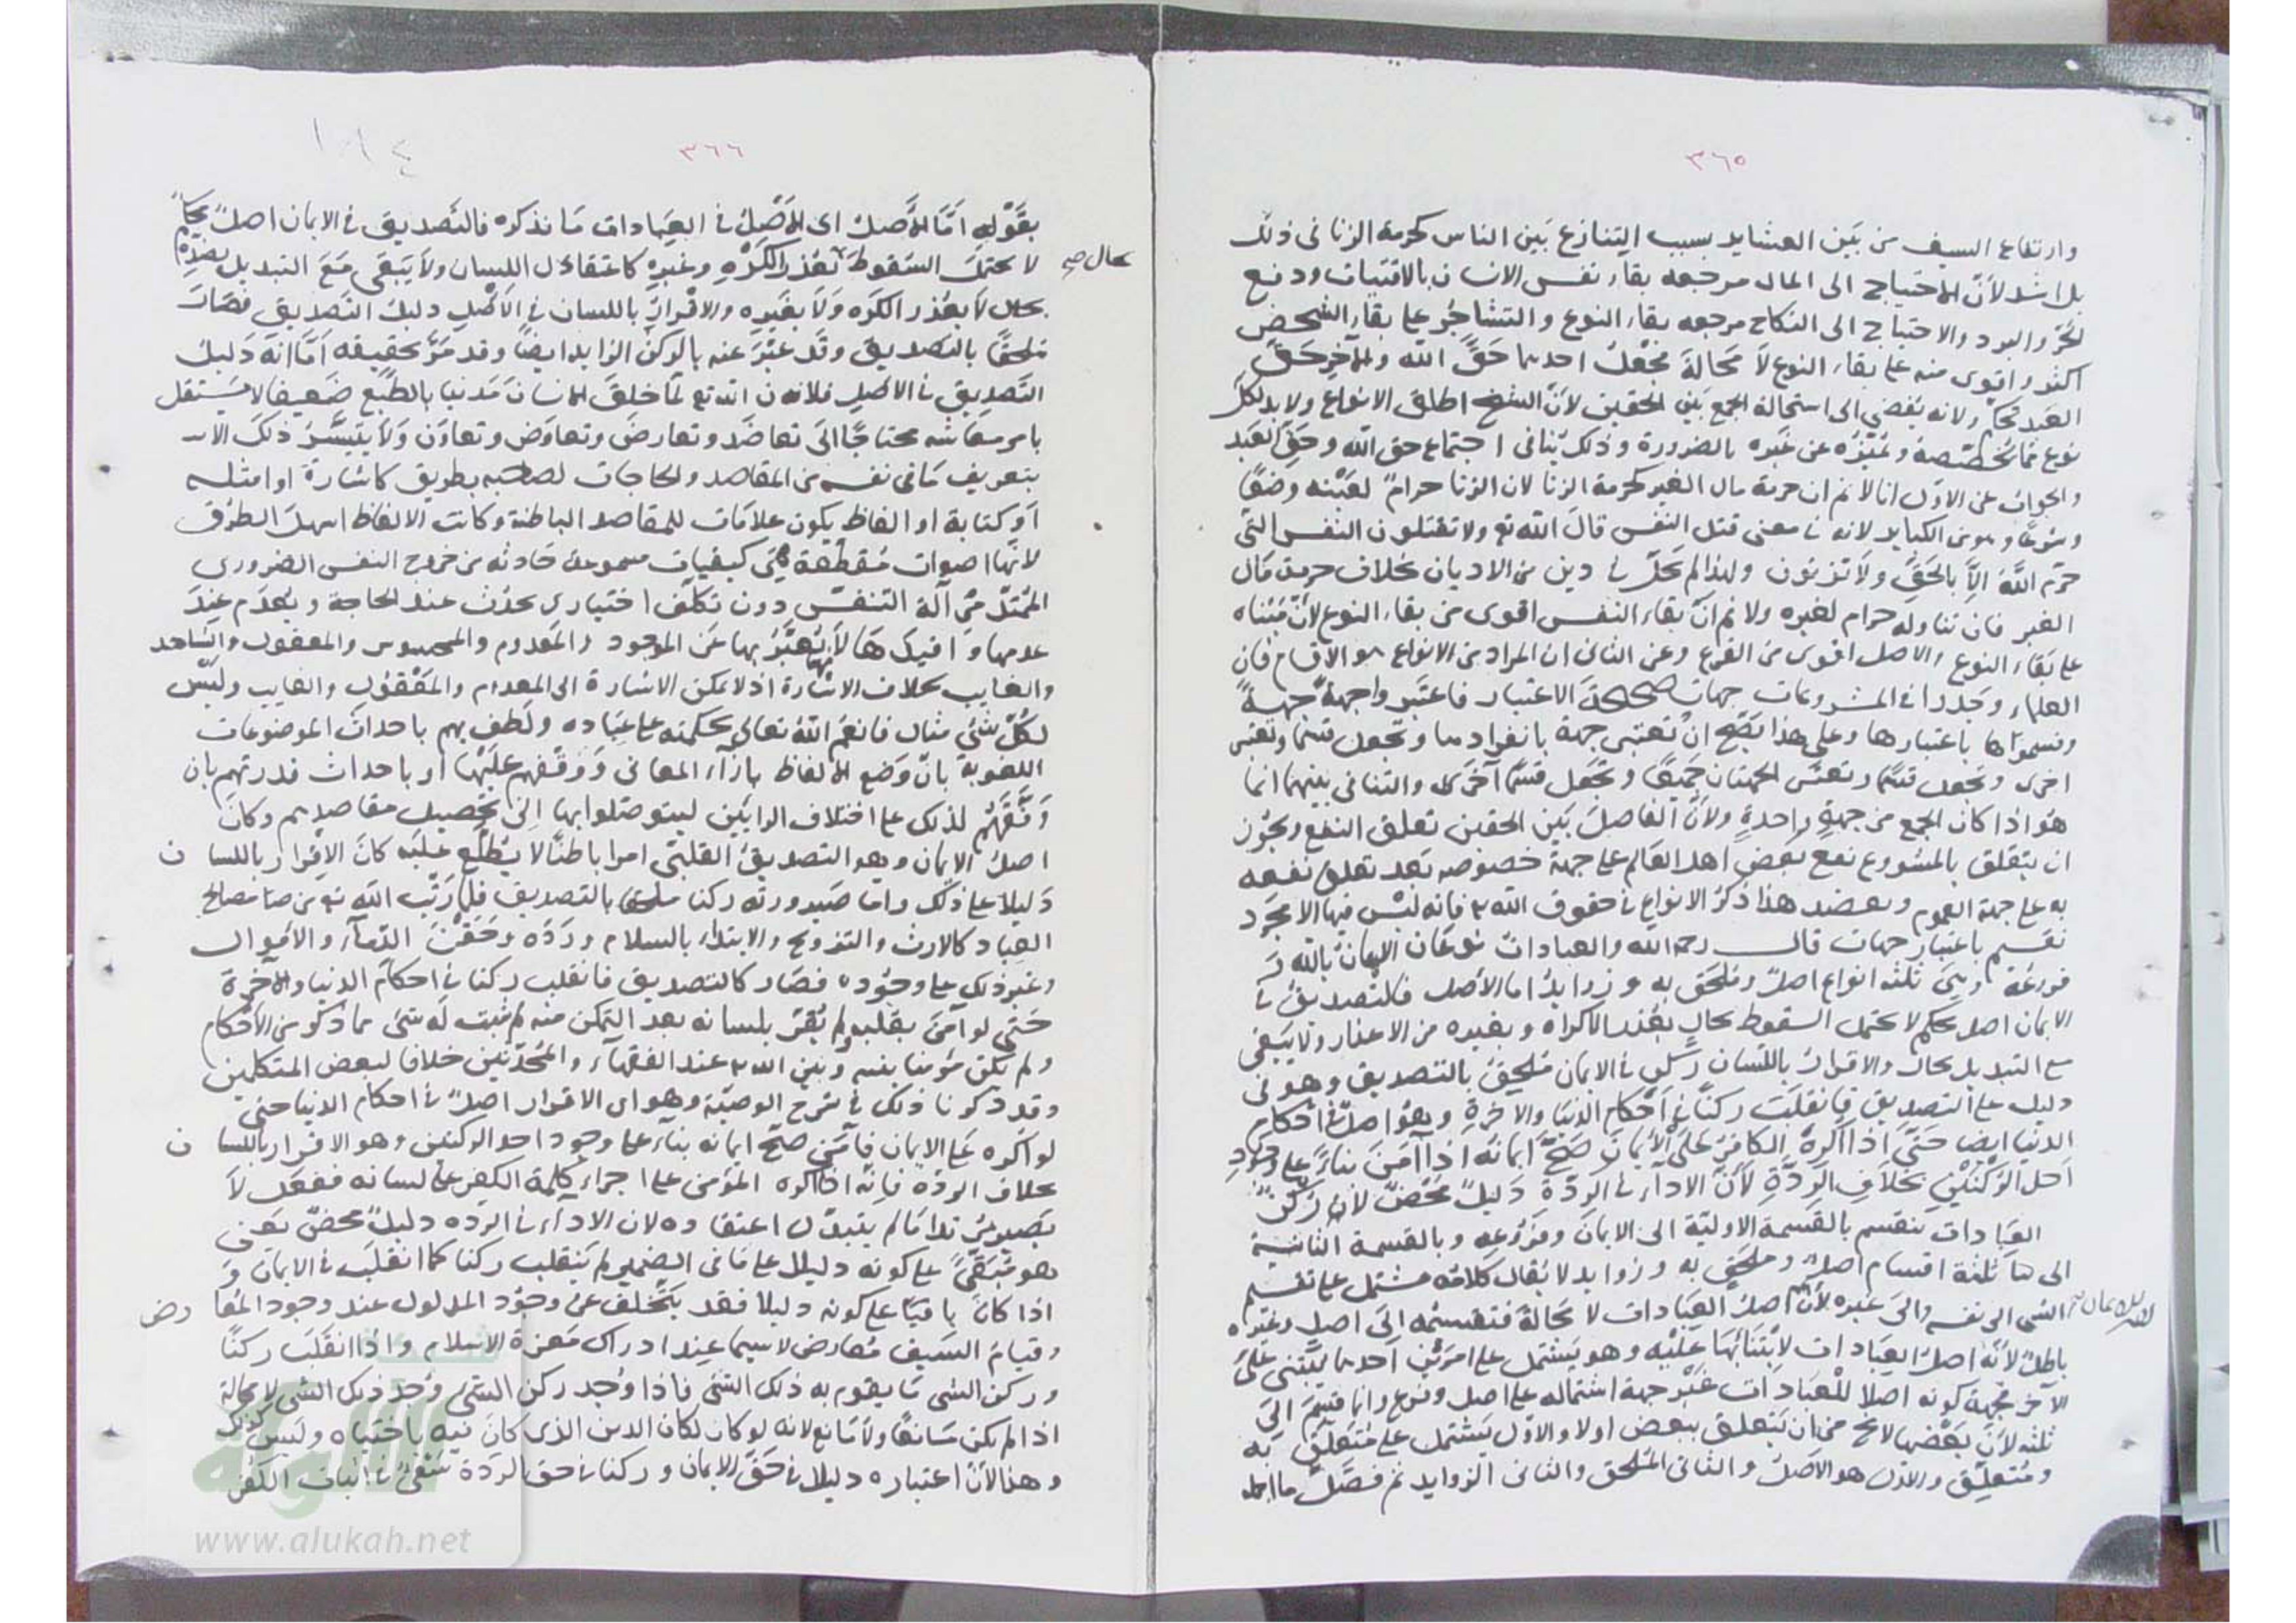 ٣٦٥
وارتفاع السيف من بين العشاير بسبب التنازع بين الناس كحرمة الزنا في ذلك
بل اشد لأن الاحتياج الى المال مرجعه بقاء نفس الانسان بالاقتيات ودفع
الحر والبرد والاحتياج الى النكاح مرجعه بقاء النوع والتشاجر على بقاء الشخص
اكثر واقوى منه على بقاء النوع لا محالة فجعل احدهما حق الله والآخر حق
العبد تحكم ولانه يفضي الى استحالة الجمع بين الحقين لأن الشيخ اطلق الانواع ولابد لكل
نوع مما يخصصه ويميزه عن غيره بالضرورة وذلك ينافي اجتماع حق الله وحق العبد
والجواب عن الاول انا لا نم ان حرمة مال الغير كحرمة الزنا لان الزنا حرام لعينه وضعًا
وشرعًا وهو من الكباير لانه في معنى قتل النفس قال الله تع ولا تقتلون النفس التي
حرم الله الا بالحق ولا تزنون ولهذا لم يحل في دين من الاديان بخلاف حرمة مال
الغير فان تناوله حرام لغيره ولا نم ان بقاء النفس اقوى من بقاء النوع لأن مبناه
على بقاء النوع والاصل اقوى من الفرع وعن الثاني ان المراد من الانواع هو الاقسام فان
العلماء وجدوا في المشروعات جهات صحيحة الاعتبار فاعتبروا جهة جهة
وقسموها باعتبارها وعلى هذا يصح ان تعتبر جهة بانفرادها وتجعل قسمًا وتعتبر
اخرى وتجعل قسمًا وتعتبر الجهتان جميعًا وتجعل قسمًا آخر والتنافي بينهما انما
هو اذا كان الجمع من جهة واحدة ولأن الفاصل بين الحقين تعلق النفع ويجوز
ان يتعلق بالمشروع نفع بعض اهل العالم على جهة خصوصه بعد تعلق نفعه
به على جهة العموم ويعضد هذا ذكر الانواع في حقوق الله تع فانه ليس فيها الا مجرد
تقسيم باعتبار جهات قال رحمه الله والعبادات نوعان الايمان بالله و
فروعه وهي ثلثة انواع اصل وملحق به وزوايد اما الاصل فالتصديق في
الايمان اصل محكم لا يحتمل السقوط بحال بعذر الاكراه وبغيره من الاعذار ولا يبقى
مع التبديل بحال والاقرار باللسان ركن في الايمان ملحق بالتصديق وهو في
دليل على التصديق فانقلب ركنًا في احكام الدنيا والاخرة وهو اصل في احكام
الدنيا ايضا حتى اذا اكره الكافر على الايمان صح ايمانه اذا آمن بناءً على وجود
احد الركنين بخلاف الردة لأن الاداء في الردة دليل محض لا ركن
العبادات تنقسم بالقسمة الاولية الى الايمان وفروعه وبالقسمة الثانية
الى ثلثة اقسام اصل وملحق به وزوايد لا يقال كلامه مشتمل على تقسيم
الشي الى نفسه والى غيره لأن اصل العبادات لا محالة فتقسيمه الى اصل وغيره
باطل لأنه اصل العبادات لابتنائها عليه وهو يشتمل على امرين احدهما يبتنى على
الآخر فجهة كونه اصلا للعبادات غير جهة اشتماله على اصل وفرع وانما قسم الى
ثلثة لأن بعضها لا يخ من ان يتعلق ببعض اولا والاول يشتمل على متعلق به
ومتعلق والاول هو الاصل والثاني الملحق والثاني الزوايد ثم فصل ما اجمله
٣٦٦
١٨٤
بقوله اما الاصل اى الاصل في العبادات ما نذكره فالتصديق في الايمان اصل محكم
لا يحتمل السقوط بعذر الكره وغيره كاعتقال اللسان ولا يبقى مع التبديل بضده
بحال صح
بحال لا بعذر الكره ولا بغيره والاقرار باللسان في الاصل دليل التصديق فصار
ملحقًا بالتصديق وقد عبر عنه بالركن الزايد ايضًا وقد مر تحقيقه اما انه دليل
التصديق في الاصل فلانه الله تع لما خلق الانسان مدنيا بالطبع ضعيفا لا يستقل
بامر معاشه محتاجًا الى تعاضد وتعارض وتعاوض وتعاون ولا يتيسر ذلك الا
بتعريف ما في نفسه من المقاصد والحاجات لصاحبه بطريق كاشارة او امثلة
او كتابة او الفاظ يكون علامات للمقاصد الباطنة وكانت الالفاظ اسهل الطرق
لانها اصوات مقطعة هي كيفيات مسموعة حادثة من خروج النفس الضروري
الممتد من آلة التنفس دون تكلف اختياري يحدث عند الحاجة ويعدم عند
عدمها وافيدها لأنه يعبر بها عن الموجود والمعدوم والمحسوس والمعقول والشاهد
والغايب بخلاف الاشارة اذ لا يمكن الاشارة الى المعدوم والمعقول والغايب وليس
لكل شئ مثال فانعم الله تعالى بحكمته على عباده ولطف بهم باحداث الموضوعات
اللغوية بان وضع الالفاظ بازاء المعاني ووقفهم عليها او باحداث قدرتهم بان
وفقهم لذلك على اختلاف الرايين ليتوصلوا بها الى تحصيل مقاصدهم وكان
اصل الايمان وهو التصديق القلبي امرا باطنًا لا يطلع عليه كان الاقرار باللسان
دليلا على ذلك واما صيرورته ركنا ملحقا بالتصديق فلما رتب الله تع من مصالح
العباد كالارث والتزويج والابتداء بالسلام ورده وحقن الدماء والاموال
وغير ذلك على وجوده فصار كالتصديق فانقلب ركنا في احكام الدنيا والآخرة
حتى لو آمن بقلبه ولم يقر بلسانه بعد التمكن منه لم يثبت له شئ مما ذكر من الاحكام
ولم يكن مؤمنا بينه وبين الله تع عند الفقهاء والمحدثين خلافا لبعض المتكلمين
وقد ذكرنا ذلك في شرح الوصية وهو اى الاقرار اصل في احكام الدنيا حتى
لو اكره على الايمان فآمن صح ايمانه بناء على وجود احد الركنين وهو الاقرار باللسان
بخلاف الردة فانه اذا اكره المؤمن على اجراء كلمة الكفر على لسانه ففعل لا
يصير مرتدا ما لم يتبدل اعتقاده لان الاداء في الرده دليل محض يعنى
هو مبقى على كونه دليلا على ما في الضمير لم ينقلب ركنا كما انقلب في الايمان و
اذا كان باقيًا على كونه دليلا فقد يتخلف عن وجود المدلول عند وجود المعارض
وقيام السيف معارض لاسيما عند ادراك معزة الاسلام واذا انقلب ركنًا
وركن الشي ما يقوم به ذلك الشئ فاذا وجد ركن الشئ وجد ذلك الشئ لا محالة
اذا لم يكن مانعًا ولا مانع لانه لو كان لكان الدين الذي كان فيه باختياره وليس كذلك
وهذا لأن اعتباره دليلا في حق الايمان وركنا في حق الردة في اثبات الكفر
www.alukah.net